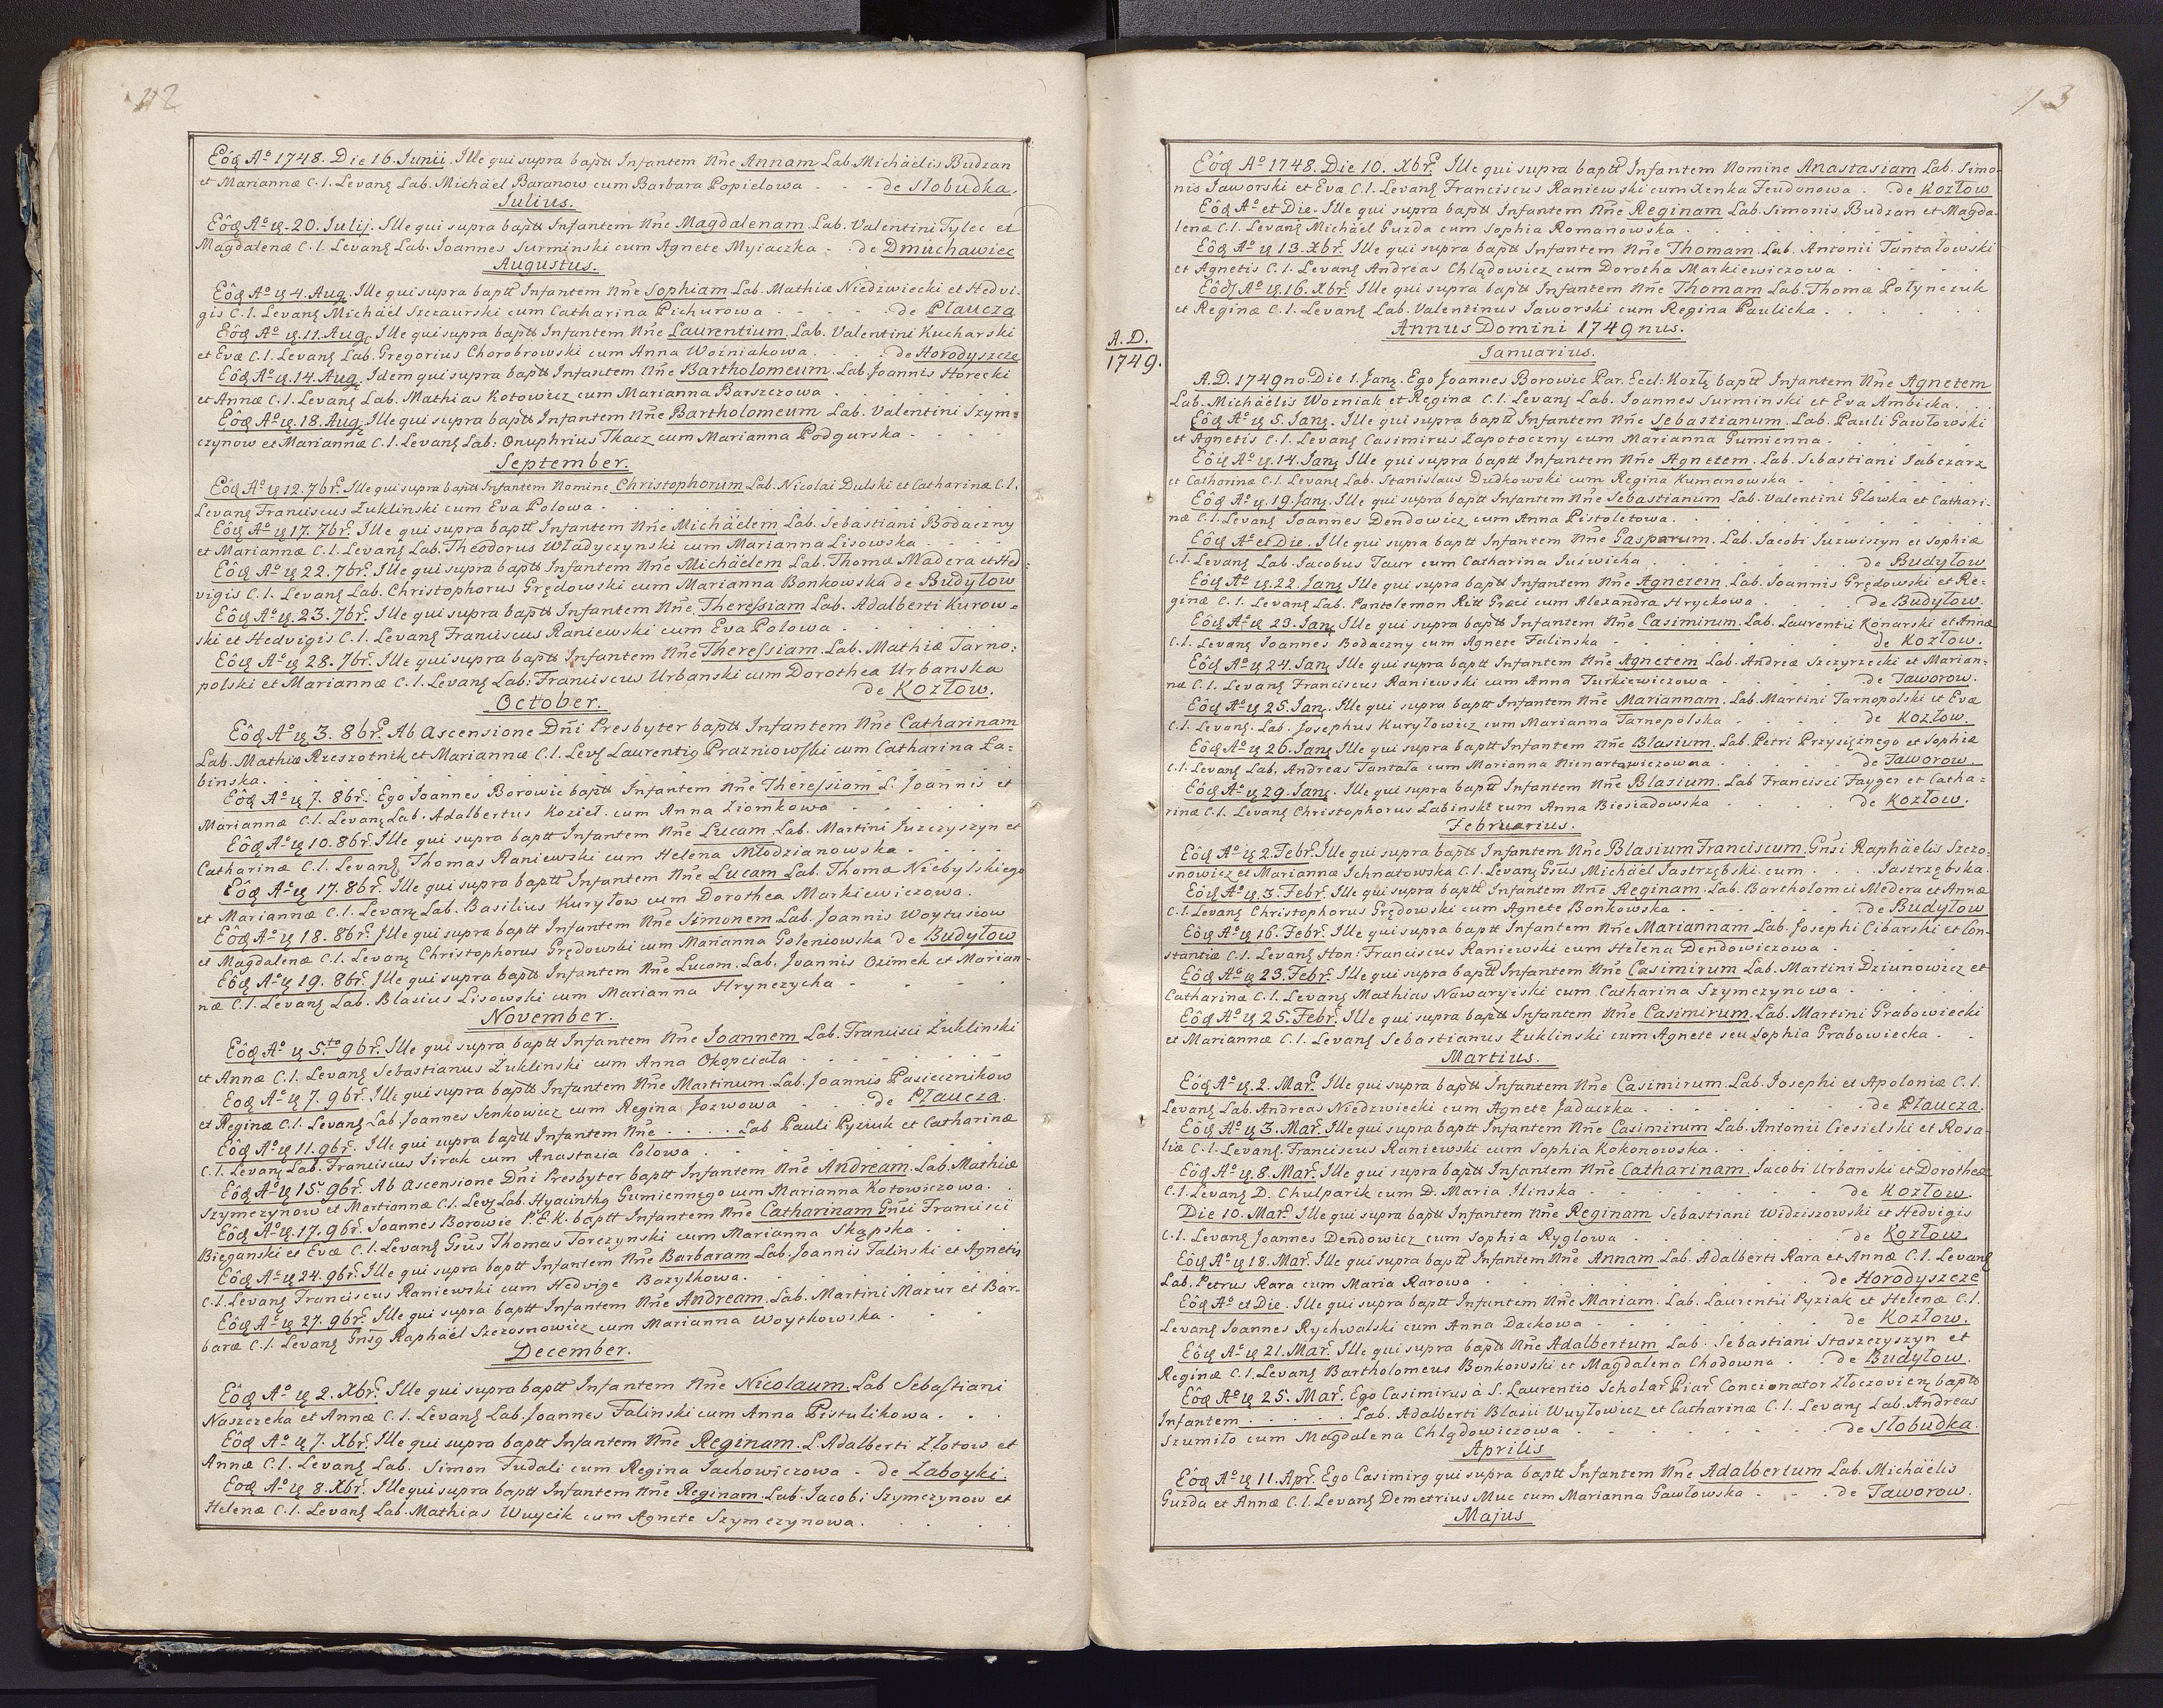 12
Eôq Aº 1748. Die 16. Junii. Ille qui supra baptt Infantem Nñe Annam Lab. Michäelis Budzan
et Mariannæ C.l. Levanę Lab. Michäel Baranow cum Barbara Popielowa - - - de Słobudka.
Julius.
Eôq Aº ię. 20. Julij. Ille qui supra baptt Infantem Nñe Magdalenam. Lab. Valentini Tylec et
Magdalenæ C.l. Levanę Lab. Joannes Surminski cum Agnete Myiaczka - de Dmuchawiec
Augustus.
Eôq Aº ię 4. Aug. Ille qui supra baptt Infantem Nñe Sophiam Lab. Mathiæ Niedzwiecki et Hedvi-
gis C.l. Levanę Michäel Szczaurski cum Catharina Pichurowa - - - - de Płaucza
Eôq Aº ię. 11. Aug. Ille qui supra baptt Infantem Nñe Laurentium. Lab. Valentini Kucharski
et Evæ C.l. Levanę Lab. Gregorius Chorobrowski cum Anna Wożniakowa. . . . de Horodyszcze
Eôq Aº ię. 14. Aug. Idem qui supra baptt Infantem Nñe Bartholomeum. Lab. Joannis Horecki
et Annæ C.l. Levanę Lab. Mathias Kotowicz cum Marianna Barszczowa . . . .
Eôq Aº ię. 18. Aug. Ille qui supra baptt Infantem Nñe Bartholomeum Lab. Valentini Szym=
czynow et Mariannæ C.l. Levanę Lab: Onuphrius Tkacz cum Marianna Podgurska - - - -
September.
Eôq Aº ię 12. 7br̃. Ille qui supra baptt Infantem Nomine Christophorum Lab. Nicolai Dulski et Catharinæ C.l.
Levanę Franciscus Żuklinski cum Eva Polowa. . . . . .
Eôq Aº ię 17. 7br̃. Ille qui supra baptt Infantem Nñe Michäelem Lab. Sebastiani Bodaczny
et Mariannæ C.l. Levanę Lab. Theodorus Władyczynski cum Marianna Lisowska . . . .
Eôq Aº ię 22. 7br̃. Ille qui supra baptt Infantem Nñe Michäelem Lab. Thomæ Madera et Hed-
vigis C.l. Levanę Lab. Christophorus Grędowski cum Marianna Bonkowska de Budyłow
Eôq Aº ię. 23. 7br̃. Ille qui supra baptt Infantem Nñe. Theressiam Lab. Adalberti Kurow=
ski et Hedvigis C.l. Levanę Franciscus Raniewski cum Eva Polowa . . . . .
Eôq Aº ię 28. 7br̃. Ille qui supra baptt Infantem Nñe Theressiam. Lab. Mathiæ Tarno:
polski et Mariannæ C.l. Levanę Lab: Franciscus Urbanski cum Dorothea Urbanska
de Kozłow.
October.
Eôq Aº ię 3. 8br̃. Ab Ascensione Dñi Presbyter baptt Infantem Nñe Catharinam
Lab. Mathiæ Rzeszotnik et Mariannæ C.l. Levę Laurentig Prazniowski cum Catharina Ła=
binska. . . . . . .
Eôq Aº ię 7. 8br̃. Ego Joannes Borowic baptt Infantem Nñe Theressiam L. Joannis et
Mariannæ C.l. Levanę Lab. Adalbertus Kozieł. cum Anna Ziomkowa - - -
Eôq Aº ię 10. 8br̃. Ille qui supra baptt Infantem Nñe Lucam Lab. Martini Juzczyszyn et
Catharinæ C.l. Levanę Thomas Raniewski cum Helena Młodzianowska - - - -
Eôq Aº ię 17. 8br̃. Ille qui supra baptt Infantem Nñe Lucam Lab. Thomæ Niebylskiego
et Mariannæ C.l. Levanę Lab. Basilius Kuryłow cum Dorothea Markiewiczowa.
Eôq Aº ię 18. 8br̃. Ille qui supra baptt Infantem Nñe Simonem. Lab. Joannis Woytusiow
et Magdalenæ C.l. Levanę Christophorus Grędowski cum Marianna Goleniowska de Budyłow
Eôq Aº ię 19. 8br̃. Ille qui supra baptt Infantem Nñe Lucam. Lab. Joannis Ozimek et Marian-
næ C.l. Levanę Lab. Blasius Lisowski cum Marianna Hrynczycha - - - -
November.
Eôq Aº ię 5.to 9br̃. Ille qui supra baptt Infantem Nñe Joannem Lab. Francisci Żuklinski
et Annæ C.l. Levanę Sebastianus Żuklinski cum Anna Okopciała - - - -
Eoq Aº ię 7. 9br̃. Ille qui supra baptt Infantem Nñe Martinum. Lab. Joannis Pasiecznikow
et Reginæ C.l. Levanę Lab Joannes Senkowicz cum Regina Jozwowa - - - de Płaucza.
Eôq Aº ię 11. 9br̃. Ille qui supra baptt Infantem Nñe . . . . Lab Pauli Pyziuk et Catharinæ
C.l. Levanę Lab. Franciscus Sirak cum Anastasia Colowa . . . .
Eôq Aº ię 15. 9br̃. Ab Ascensione Dñi Presbyter baptt Infantem Nñe Andream. Lab. Mathiæ
Szymczynow et Mariannæ C.l. Levę Lab. Hyacinthg Gumiennęgo cum Marianna Kotowiczowa. .
Eôq Aº ię. 17. 9br̃. Joannes Borowic P.E.K. baptt Infantem Nñe Catharinam Gñsi Francisci
Bieganski et Evæ C.l. Levanę Gsus Thomas Torczynski cum Marianna Skąpska . . .
Eôq Aº ię 24. 9br̃. Ille qui supra baptt Infantem Nñe Barbaram Lab. Joannis Falinski et Agnetis
C.l. Levanę Franciscus Raniewski cum Hedvige Bazylkowa. . . . .
Eôq Aº ię 27. 9br̃. Ille qui supra baptt Infantem Nñe Andream. Lab. Martini Mazur et Bar-
baræ C.l. Levanę Gnsg Raphäel Szczosnowicz cum Marianna Woytkowska . . .
December.
Eôq Aº ię 2. Xbr̃. Ille qui supra baptt Infantem Nñe Nicolaum. Lab Sebastiani
Naszczeka et Annæ C.l. Levanę Lab. Joannes Falinski cum Anna Pistulikowa . . .
Eôq Aº ię 7. Xbr̃. Ille qui supra baptt Infantem Nñe Reginam. L. Adalberti Złotow et
Annæ C.l. Levanę Lab. Simon Fudali cum Regina Jachowiczowa - de Zaboyki.
Eoq Aº ię 8. Xbr̃. Ille qui supra baptt Infantem Nñe Reginam. Lab. Jacobi Szymczynow et
Helenæ C.l. Levanę Lab. Mathias Wuycik cum Agnete Szymczynowa. . . . .
13
Eôq Aº 1748. Die 10. Xbr̃. Ille qui supra baptt Infantem Nomine Anastasiam Lab. Simo-
nis Jaworski et Evæ C.l. Levanę Franciscus Raniewski cum Xenka Feudonowa . de Kozłow
Eôq Aº et Die. Ille qui supra baptt Infantem Nñe Reginam Lab. Simonis Budzan et Magda-
lenæ C.l. Levanę Michäel Guzda cum Sophia Romanowska . . . . .
Eôq Aº ię 13. Xbr̃. Ille qui supra baptt Infantem Nñe Thomam. Lab. Antonii Tantałowski
et Agnetis C.l. Levanę Andreas Chlądowicz cum Dorotha Markiewiczowa . . . .
Eôq Aº ię. 16. Xbr̃. Ille qui supra baptt Infantem Nñe Thomam Lab. Thomæ Połynczuk
et Reginæ C.l. Levanę Lab. Valentinus Jaworski cum Regina Paulicka . . . . .
Annus Domini 1749nus.
A.D.
1749.
Januarius.
A.D. 1749no. Die 1. Janę. Ego Joannes Borowic Par. Eccl: Kozłę baptt Infantem Nñe Agnetem
Lab. Michäelis Wozniak et Reginæ C.l. Levanę Lab. Joannes Surminski et Eva Ambicka. . .
Eôq Aº ię 5. Janę. Ille qui supra baptt Infantem Nñe Sebastianum. Lab. Pauli Gawłowski
et Agnetis C.l. Levanę Casimirus Zapotoczny cum Marianna Gumienna . . . .
Eôq Aº ię. 14. Janę Ille qui supra baptt Infantem Nñe Agnetem. Lab. Sebastiani Jabczarz
et Catharinæ C.l. Levanę Lab. Stanislaus Dudkowski cum Regina Kumanowska - - - -
Eôq Aº ię. 19. Janę. Ille qui supra baptt Infantem Nñe Sebastianum Lab. Valentini Glowka et Cathari-
næ C.l. Levanę Joannes Dendowicz cum Anna Pistoletowa. . . . .
Eôq Aº et Die. Ille qui supra baptt Infantem Nñe Gasparum. Lab. Jacobi Juzwiszyn et Sophiæ
C.l. Levanę Lab. Jacobus Taur cum Catharina Juźwicha . . . . de Budyłow
Eôq Aº ię. 22. Janę Ille qui supra baptt Infantem Nñe Agnetem. Lab. Joannis Grędowski et Re=
ginæ C.l. Levanę Lab. Pantelemon Ritt Græci cum Alexandra Hryckowa . . . de Budyłow.
Eôq Aº ię 23. Janę Ille qui supra baptt Infantem Nñe Casimirum. Lab. Laurentii Konarski et Annæ
C.l. Levanę Joannes Bodaczny cum Agnete Falinska - - - - de Kozłow.
Eôq Aº ię 24. Janę Ille qui supra baptt Infantem Nñe Agnetem Lab. Andreæ Szczyrzecki et Marian=
næ C.l. Levanę Franciscus Raniewski cum Anna Turkiewiczowa - - - - de Jaworow.
Eôq Aº ię 25. Janę. Ille qui supra baptt Infantem Nñe Mariannam. Lab. Martini Tarnopolski et Evæ
C.l. Levanę. Lab. Josephus Kuryłowicz cum Marianna Tarnopolska - - - - de Kozłow.
Eôq Aº ię 26. Janę Ille qui supra baptt Infantem Nñe Blasium. Lab. Petri Przysiężnego et Sophiæ
C.l. Levanę Lab. Andreas Tantała cum Marianna Nienartowiczowna - - - de Jaworow.
Eôq Aº ię 29. Janę. Ille qui supra baptt Infantem Nñe Blasium. Lab Francisci Fayger et Catha=
rinæ C.l. Levanę Christophorus Labinski cum Anna Biesiadowska - - - - de Kozłow.
Februarius.
Eôq Aº ię 2. Febr̃. Ille qui supra baptt Infantem Nñe Blasium Franciscum. Gñsi Raphäelis Szczo-
snowicz et Mariannæ Jchnatowska C.l. Levanę Gsus Michäel Jastrzębski. cum . . . . Jastrzębska.
Eôq Aº ię. 3. Febr̃. Ille qui supra baptt Infantem Nñe Reginam. Lab. Bartholomei Medera et Annæ
C.l. Levanę Christophorus Grędowski cum Agnete Bonkowska . . . . . de Budyłow
Eôq Aº ię 16. Febr̃. Ille qui supra baptt Infantem Nñe Mariannam Lab. Josephi Cibarski et Con-
stantiæ C.l. Levanę Hon: Franciscus Raniewski cum Helena Dendowiczowa . . . .
Eôq Aº ię 23. Febr̃. Ille qui supra baptt Infantem Nñe Casimirum Lab. Martini Dziunowicz et
Catharinæ C.l. Levanę Mathias Nawaryiski cum Catharina Szymczynowa - - - -
Eôq Aº ię 25. Febr̃. Ille qui supra baptt Infantem Nñe Casimirum. Lab. Martini Grabowiecki
et Mariannæ C.l. Levanę Sebastianus Żuklinski cum Agnete seu Sophia Grabowiecka . .
Martius.
Eôq Aº ię. 2. Mar̃. Ille qui supra baptt Infantem Nñe Casimirum. Lab. Josephi et Apoloniæ C.l.
Levanę Lab. Andreas Niedzwiecki cum Agnete Jaduczka . . . . . de Płaucza.
Eôq Aº ię 3. Mar̃. Ille qui supra baptt Infantem Nñe Casimirum Lab. Antonii Ciesielski et Rosa-
liæ C.l. Levanę. Franciscus Raniewski cum Sophia Kokonowska. . . . .
Eôq Aº ię. 8. Mar̃. Ille qui supra baptt Infantem Nñe Catharinam. Jacobi Urbanski et Dorotheæ
C.l. Levanę D. Chulparik cum D. Maria Ilinska - - - - - de Kozłow.
Die 10. Mar̃. Ille qui supra baptt Infantem Nñe Reginam Sebastiani Widziszowski et Hedvigis
C.l. Levanę Joannes Dendowicz cum Sophia Ryglowa . . . . . de Kozłow.
Eôq Aº ię 18. Mar̃. Ille qui supra baptt Infantem Nñe Annam Lab. Adalberti Rara et Annæ C.l. Levanę
Lab. Petrus Rara cum Maria Rarowa . . . . . de Horodyszcze
Eôq Aº et Die. Ille qui supra baptt Infantem Nñe Mariam. Lab. Laurentii Pyziak et Helenæ C.l.
Levanę Joannes Rychwalski cum Anna Dackowa - - - - - de Kozłow.
Eôq Aº ię 21. Mar̃. Ille qui supra baptt Nñe Adalbertum Lab. Sebastiani Staszczyszyn et
Reginæ C.l. Levanę Bartholomeus Bonkowski et Magdalena Chodowna . . de Budyłow.
Eôq Aº ię 25. Mar̃. Ego Casimirus à S. Laurentio Scholar̃ Piar̃ Concionator Złoczovienę baptt
Infantem . . . . . . Lab. Adalberti Blasii Wuyłowicz et Catharinæ C.l. Levanę Lab. Andreas
Szumiło cum Magdalena Chlądowiczowa - - - - - . de Słobudka.
Aprilis
Eôq Aº ię 11. Apr̃. Ego Casimirg qui supra baptt Infantem Nñe Adalbertum Lab. Michäelis
Guzda et Annæ C.l. Levanę Demetrius Muc cum Marianna Gawłowska - - - de Jaworow.
Majus